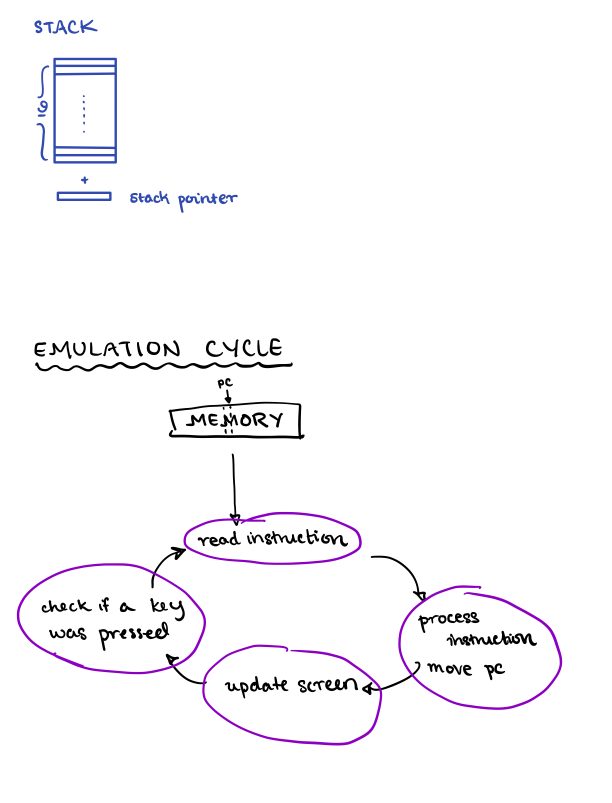 STACK
16
+
stack pointer
EMULATION CYCLE
PC
MEMORY
read instruction
process
instruction
move pc
update screen
check if a key
was pressed